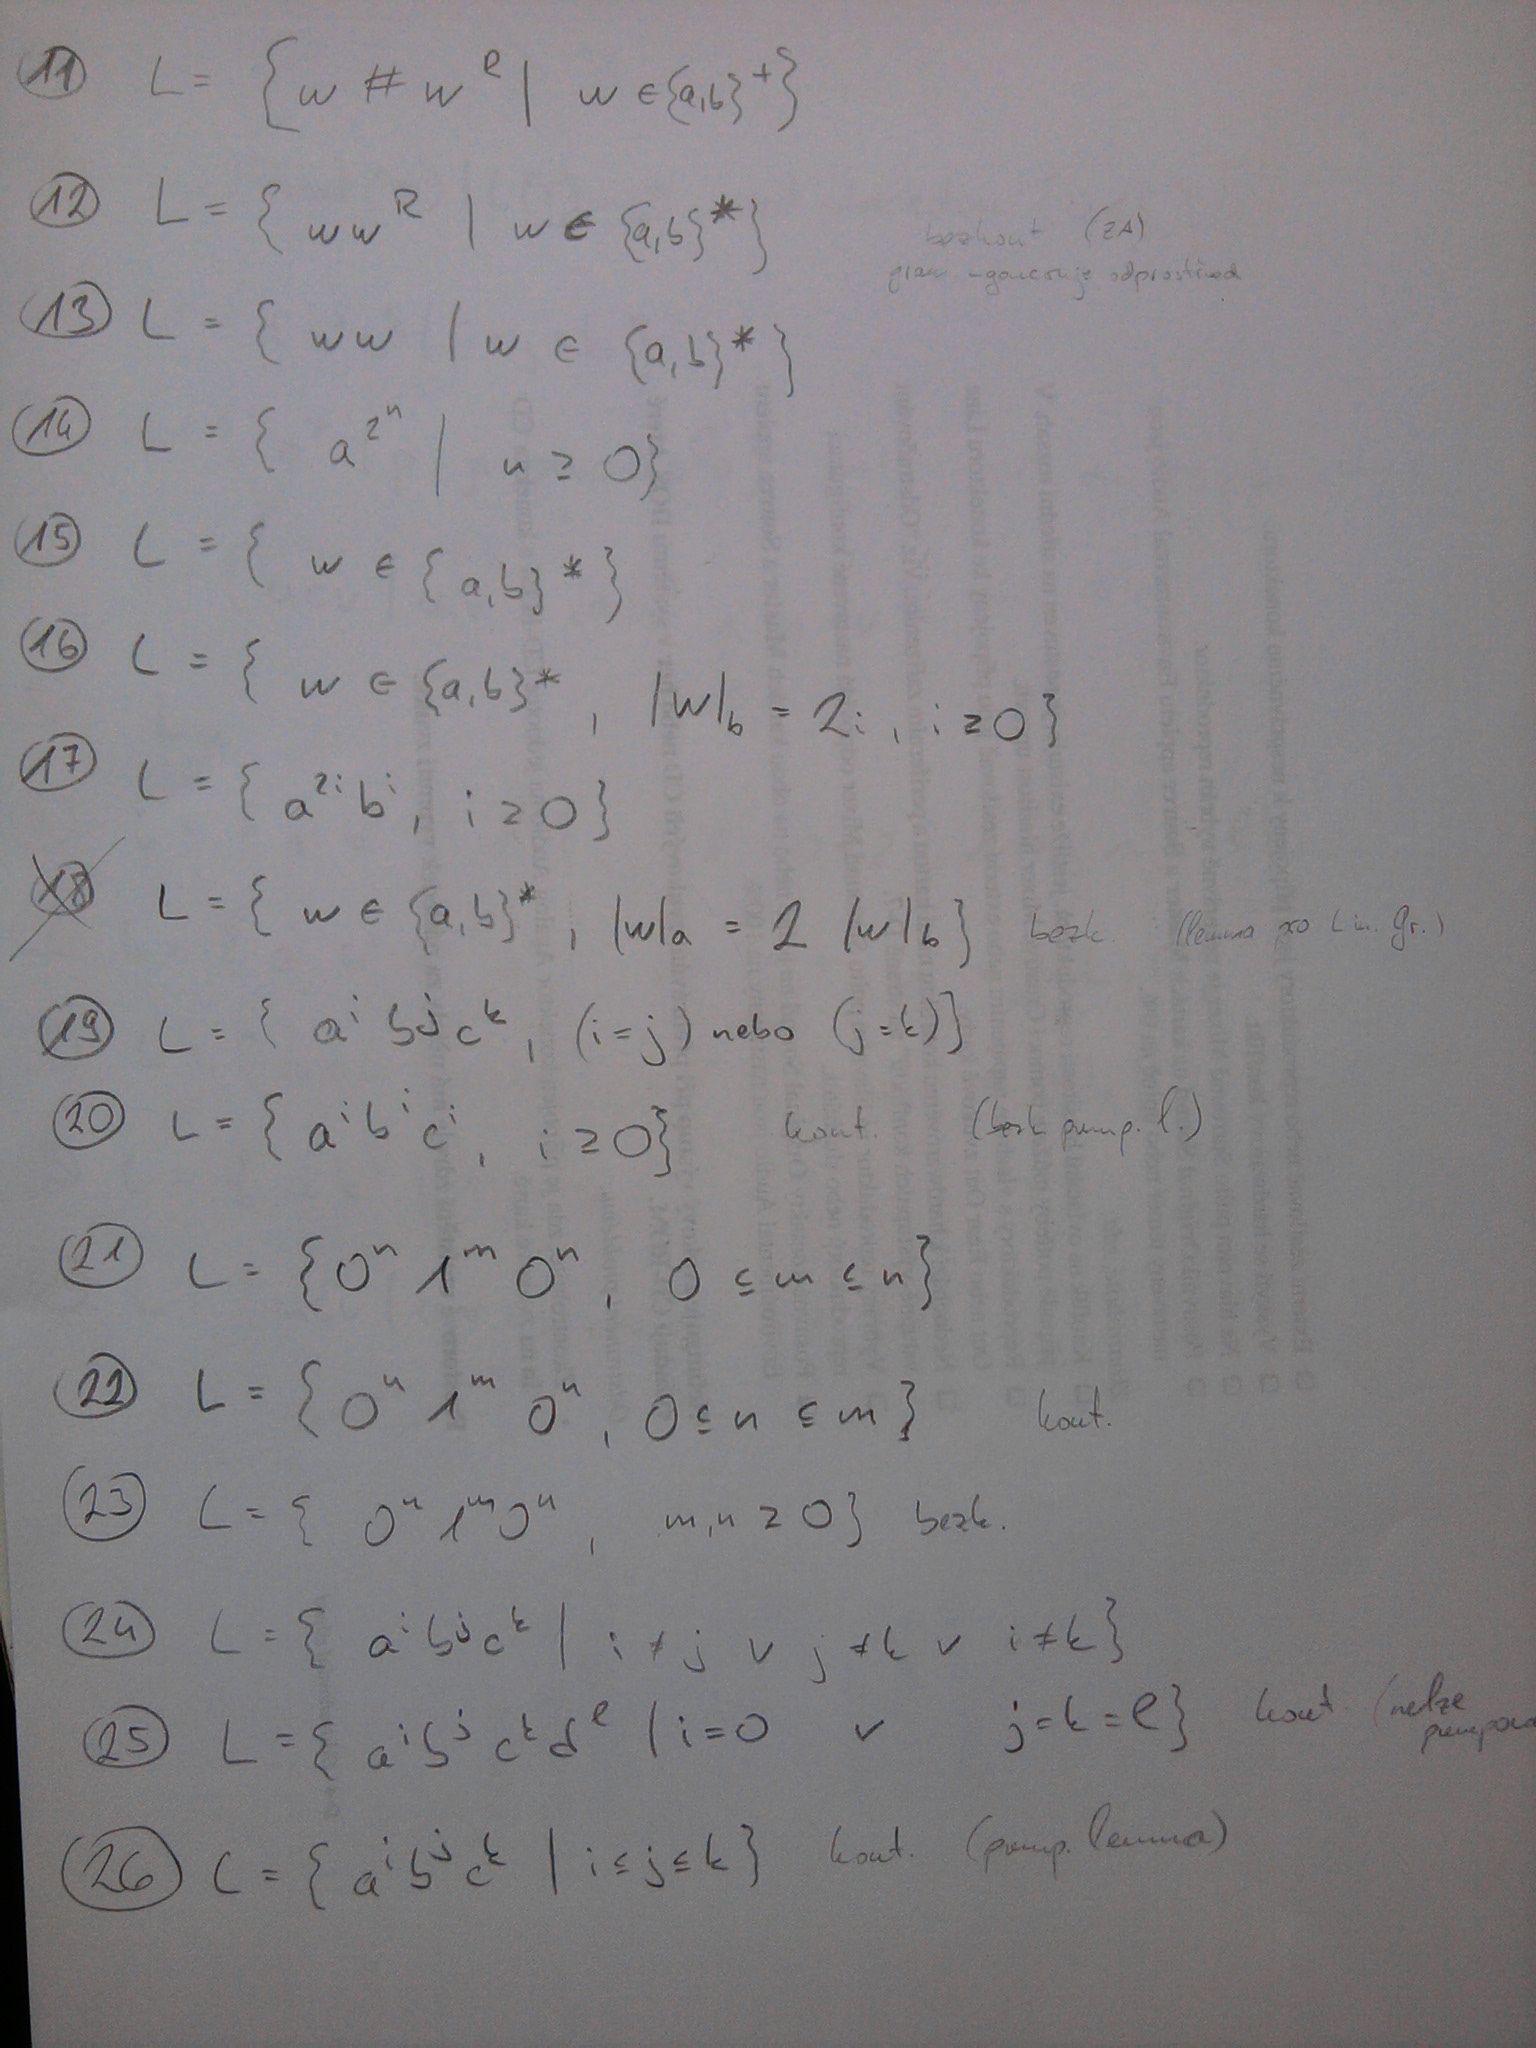 11 L = { w # w^R | w ∈ {a,b}^+ }
12 L = { ww^R | w ∈ {a,b}^* } bezkont (ZA)
gram odprostřed
13 L = { ww | w ∈ {a,b}^* }
14 L = { a^2^n | n ≥ 0 }
15 L = { w ∈ {a,b}^* }
16 L = { w ∈ {a,b}^*, |w|_b = 2i, i ≥ 0 }
17 L = { a^2i b^i, i ≥ 0 }
18 L = { w ∈ {a,b}^*, |w|_a = 2 |w|_b } bezk. (lemma pro Lin. Gr.)
19 L = { a^i b^j c^k, (i=j) nebo (j=k) }
20 L = { a^i b^i c^i, i ≥ 0 } kont. (bezk pump. l.)
21 L = { 0^n 1^m 0^n, 0 ≤ m ≤ n }
22 L = { 0^n 1^m 0^n, 0 ≤ n ≤ m } kont.
23 L = { 0^n 1^m 0^n, m,n ≥ 0 } bezk.
24 L = { a^i b^j c^k | i ≠ j ∨ j ≠ k ∨ i ≠ k }
25 L = { a^i b^j c^k d^l | i=0 ∨ j=k=l } kont (nelze
pumpova
26 L = { a^i b^j c^k | i ≤ j ≤ k } kont. (pump. lemma)